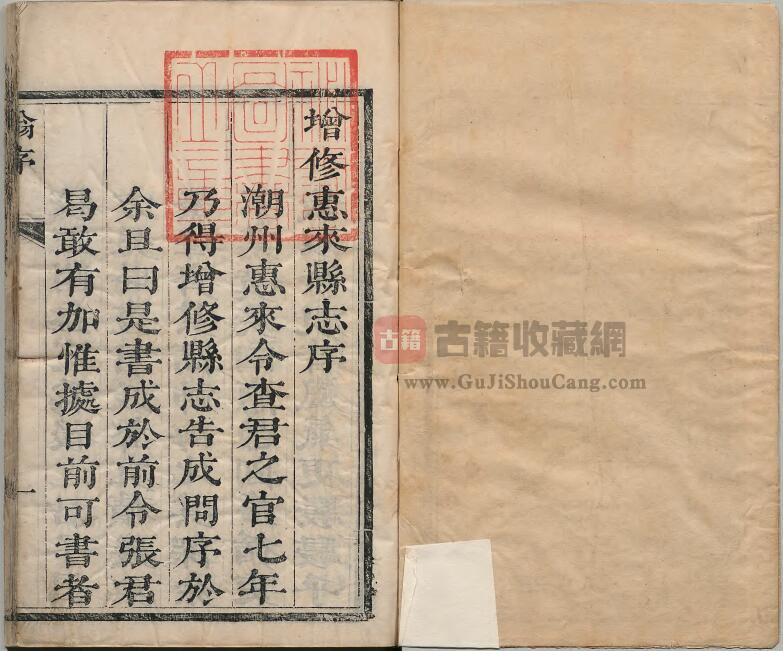 增修惠來縣志序
潮州惠來令查君之官七年
乃得增修縣志告成問序於
余且曰是書成於前令張君
曷敢有加惟據目前可書者
序
一
古籍
古籍收藏網
www.GuJiShouCang.com